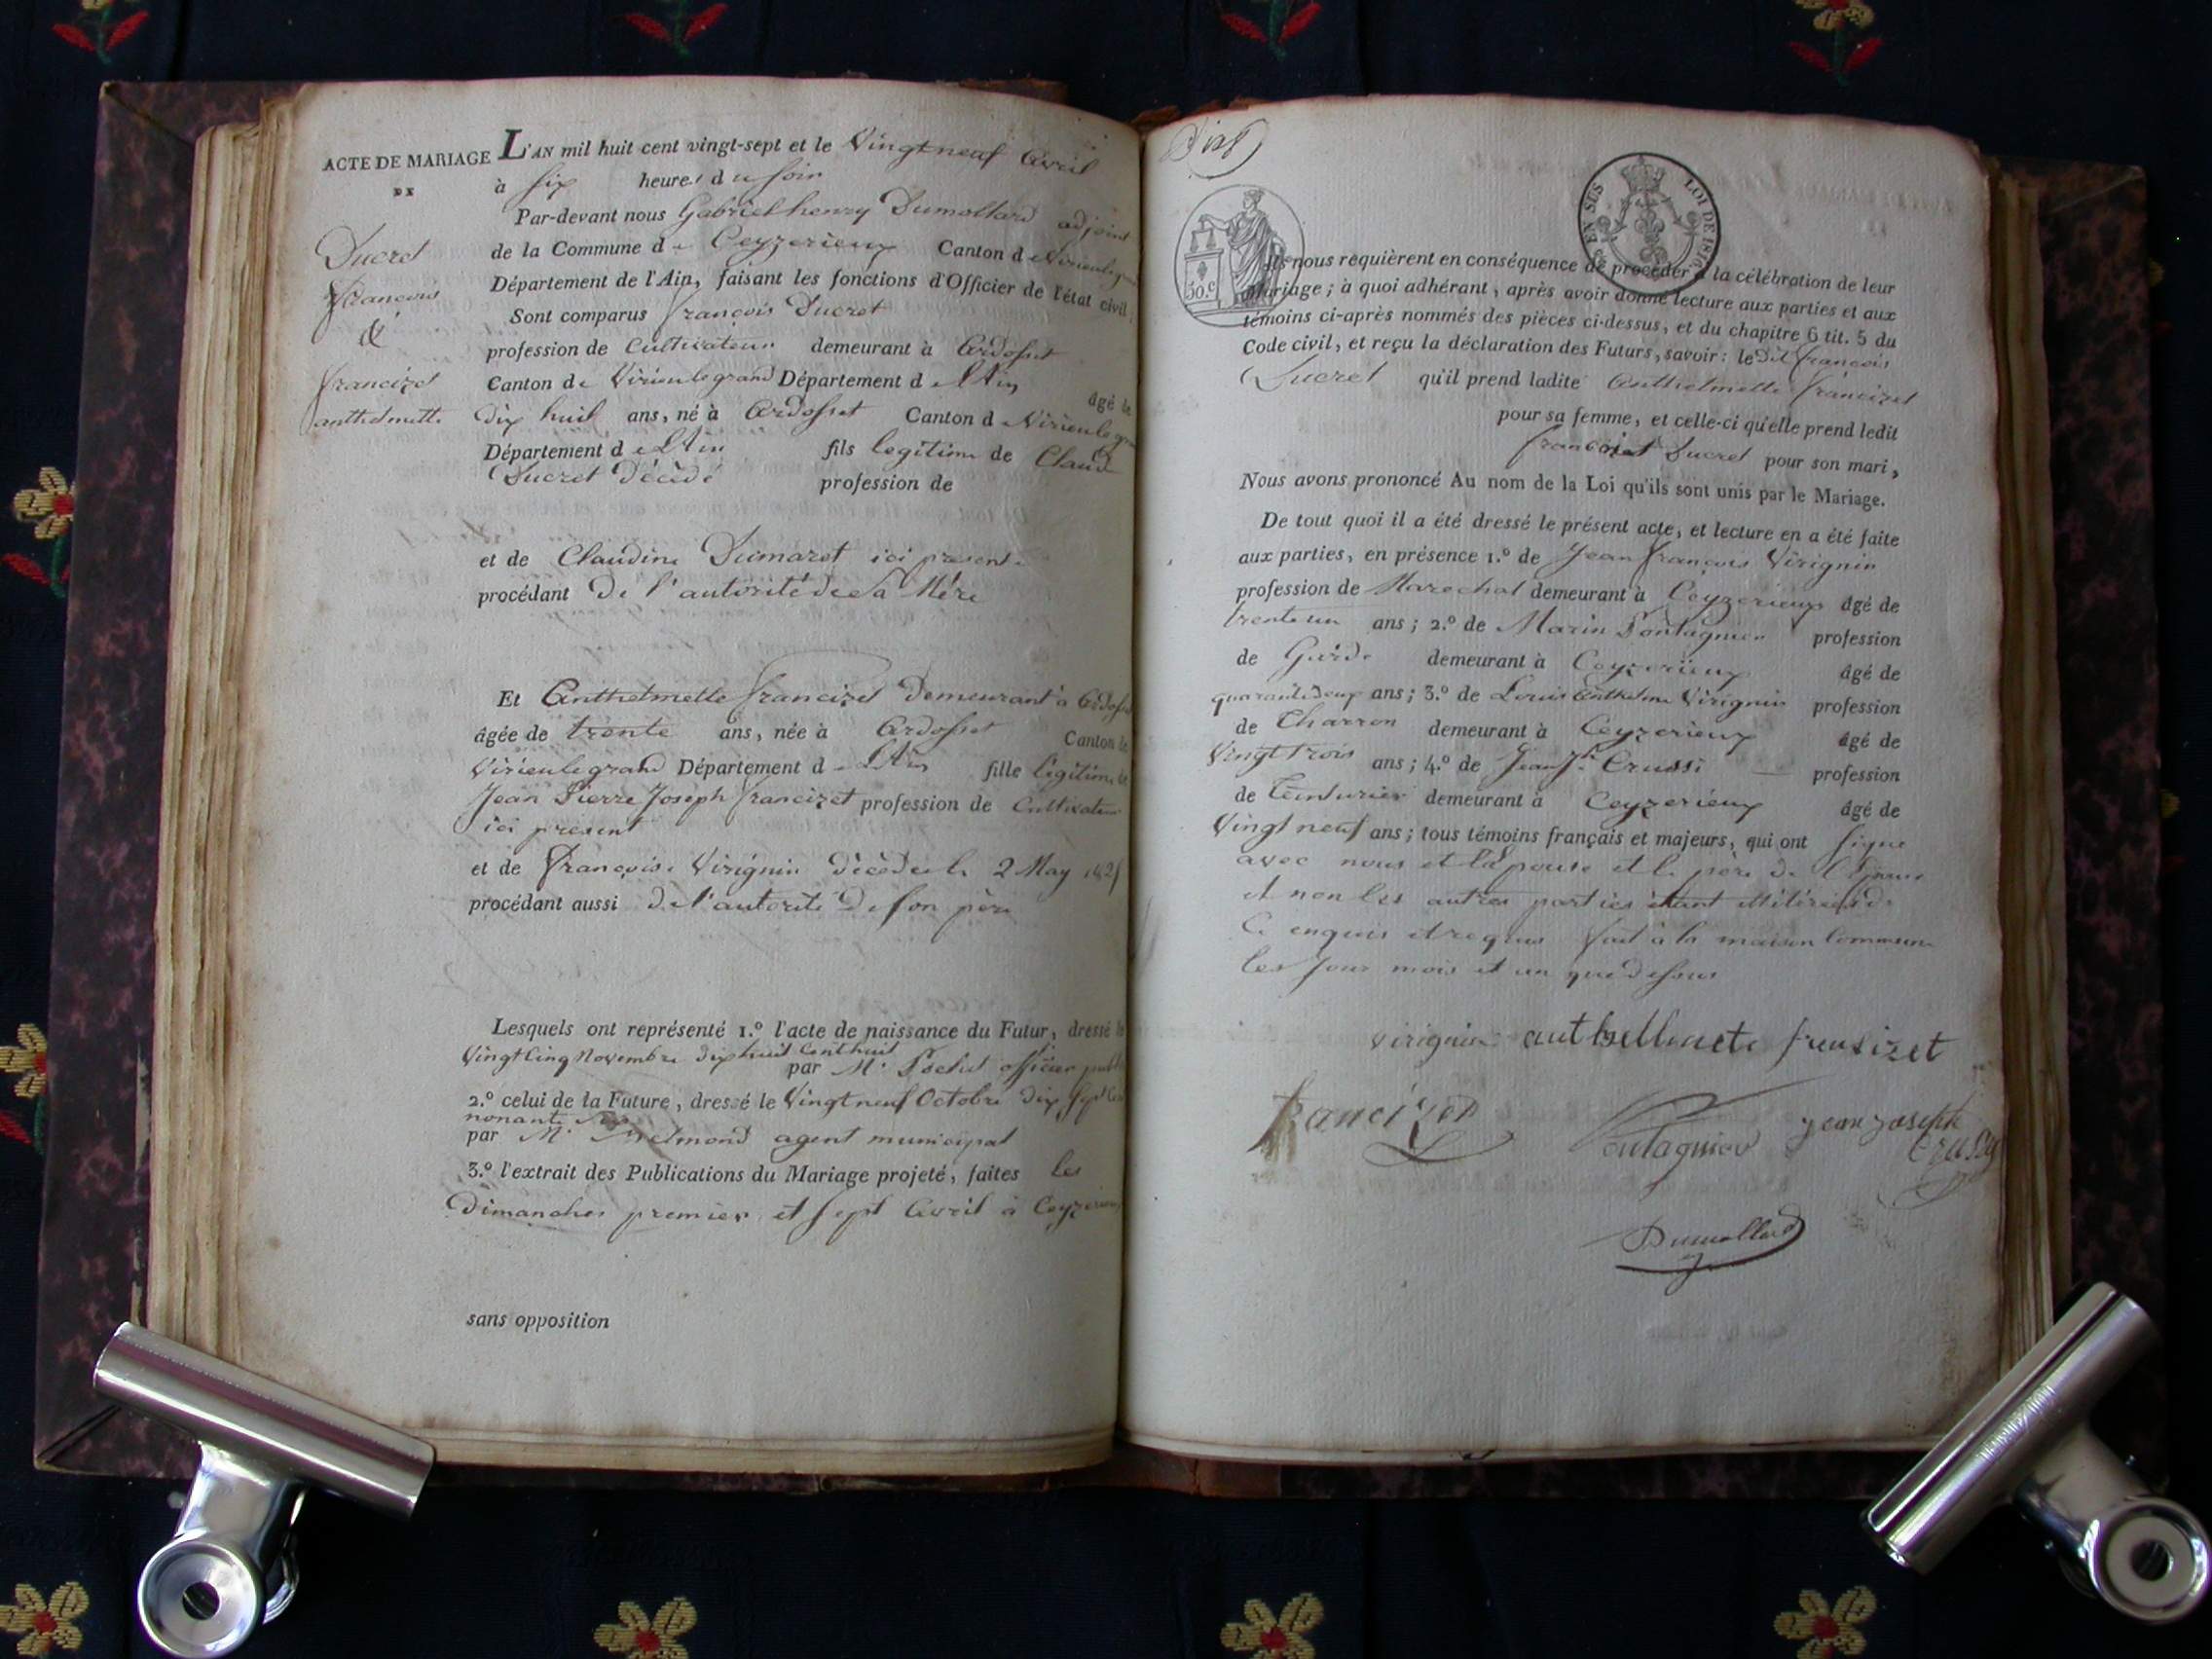 ACTE DE MARIAGE
DE
Ducret
françois
&
francizet
anthelmette
L'AN mil huit cent vingt-sept et le Vingt neuf avril
à six heures du soir
Par-devant nous Gabriel henry Dumollard adjoint
de la Commune de Ceyzerieux Canton de Virieulegrand
Département de l'Ain, faisant les fonctions d'Officier de l'état civil
Sont comparus françois Ducret
profession de Cultivateur demeurant à Ardosset
Canton de Virieulegrand Département de l'Ain âgé de
dix huit ans, né à Ardosset Canton de Virieulegrand
Département de l'Ain fils legitime de Claude
Ducret Décédé profession de
et de Claudine Dumaret ici presente
procédant De l'autorité de sa Mère
Et Anthelmette francizet Demeurant à Ardosset
âgée de trente ans, née à Ardosset Canton de
Virieulegrand Département de l'Ain fille légitime de
Jean Pierre Joseph francizet profession de Cultivateur
ici present
et de françoise Virignin décédée le 2 May
procédant aussi de l'autorité de son père
Lesquels ont représenté 1.º l'acte de naissance du Futur, dressé le
Vingt Cinq Novembre dix huit cent huit
par Mr officier public
2.º celui de la Future, dressé le Vingt neuf Octobre dix sept cent
nonante
par Mr agent municipal
3.º l'extrait des Publications du Mariage projeté, faites les
Dimanches premier et sept avril à Ceyzerieux
sans opposition
50.c
EN SUS LOI DE 1816
Ils nous requièrent en conséquence de procéder à la célébration de leur
Mariage ; à quoi adhérant, après avoir donné lecture aux parties et aux
témoins ci-après nommés des pièces ci-dessus, et du chapitre 6 tit. 5 du
Code civil, et reçu la déclaration des Futurs, savoir : le dit françois
Ducret qu'il prend ladite Anthelmette francizet
pour sa femme, et celle-ci qu'elle prend ledit
françois Ducret pour son mari,
Nous avons prononcé Au nom de la Loi qu'ils sont unis par le Mariage.
De tout quoi il a été dressé le présent acte, et lecture en a été faite
aux parties, en présence 1.º de Jean françois Virignin
profession de Marechal demeurant à Ceyzerieux âgé de
trente un ans ; 2.º de Marin Pontagnier profession
de Garde demeurant à Ceyzerieux âgé de
quarante deux ans ; 3.º de Louis Anthelme Virignin profession
de Charron demeurant à Ceyzerieux âgé de
Vingt trois ans ; 4.º de Jean Jh Crussi profession
de Teinturier demeurant à Ceyzerieux âgé de
Vingt neuf ans ; tous témoins français et majeurs, qui ont signé
avec nous et l'Epouse et le père de l'Epouse
et non les autres parties étant illitérées de
Ce enquis et requis fait à la maison Commune
les jour mois et an que dessus
virignin anthellmete fransizet
francizet
Pontagnier
jean joseph
crussy
Dumollard